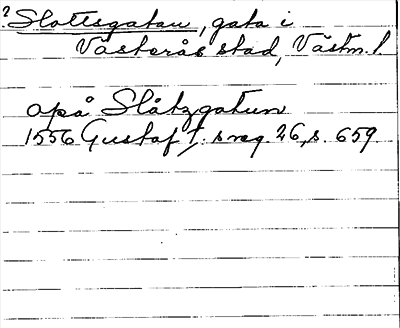 ? Slottsgatan, gata i
Västerås stad, Västm. l.
apå Slåtzgatun
1556 Gustaf I: s reg. 26, s. 659